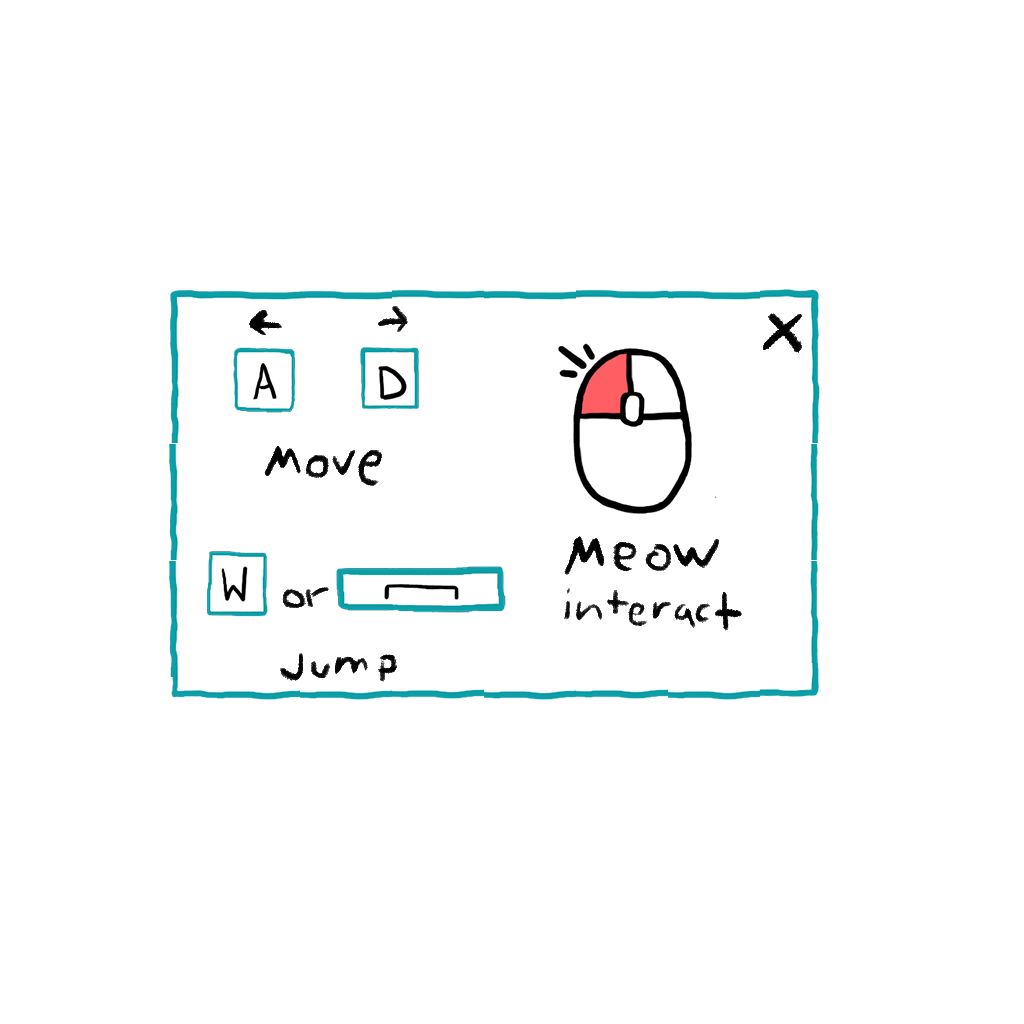 A D
Move
W or
Jump
X
Meow
interact